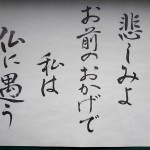 悲しみよ
お前のおかげで
私は
仏に遇う